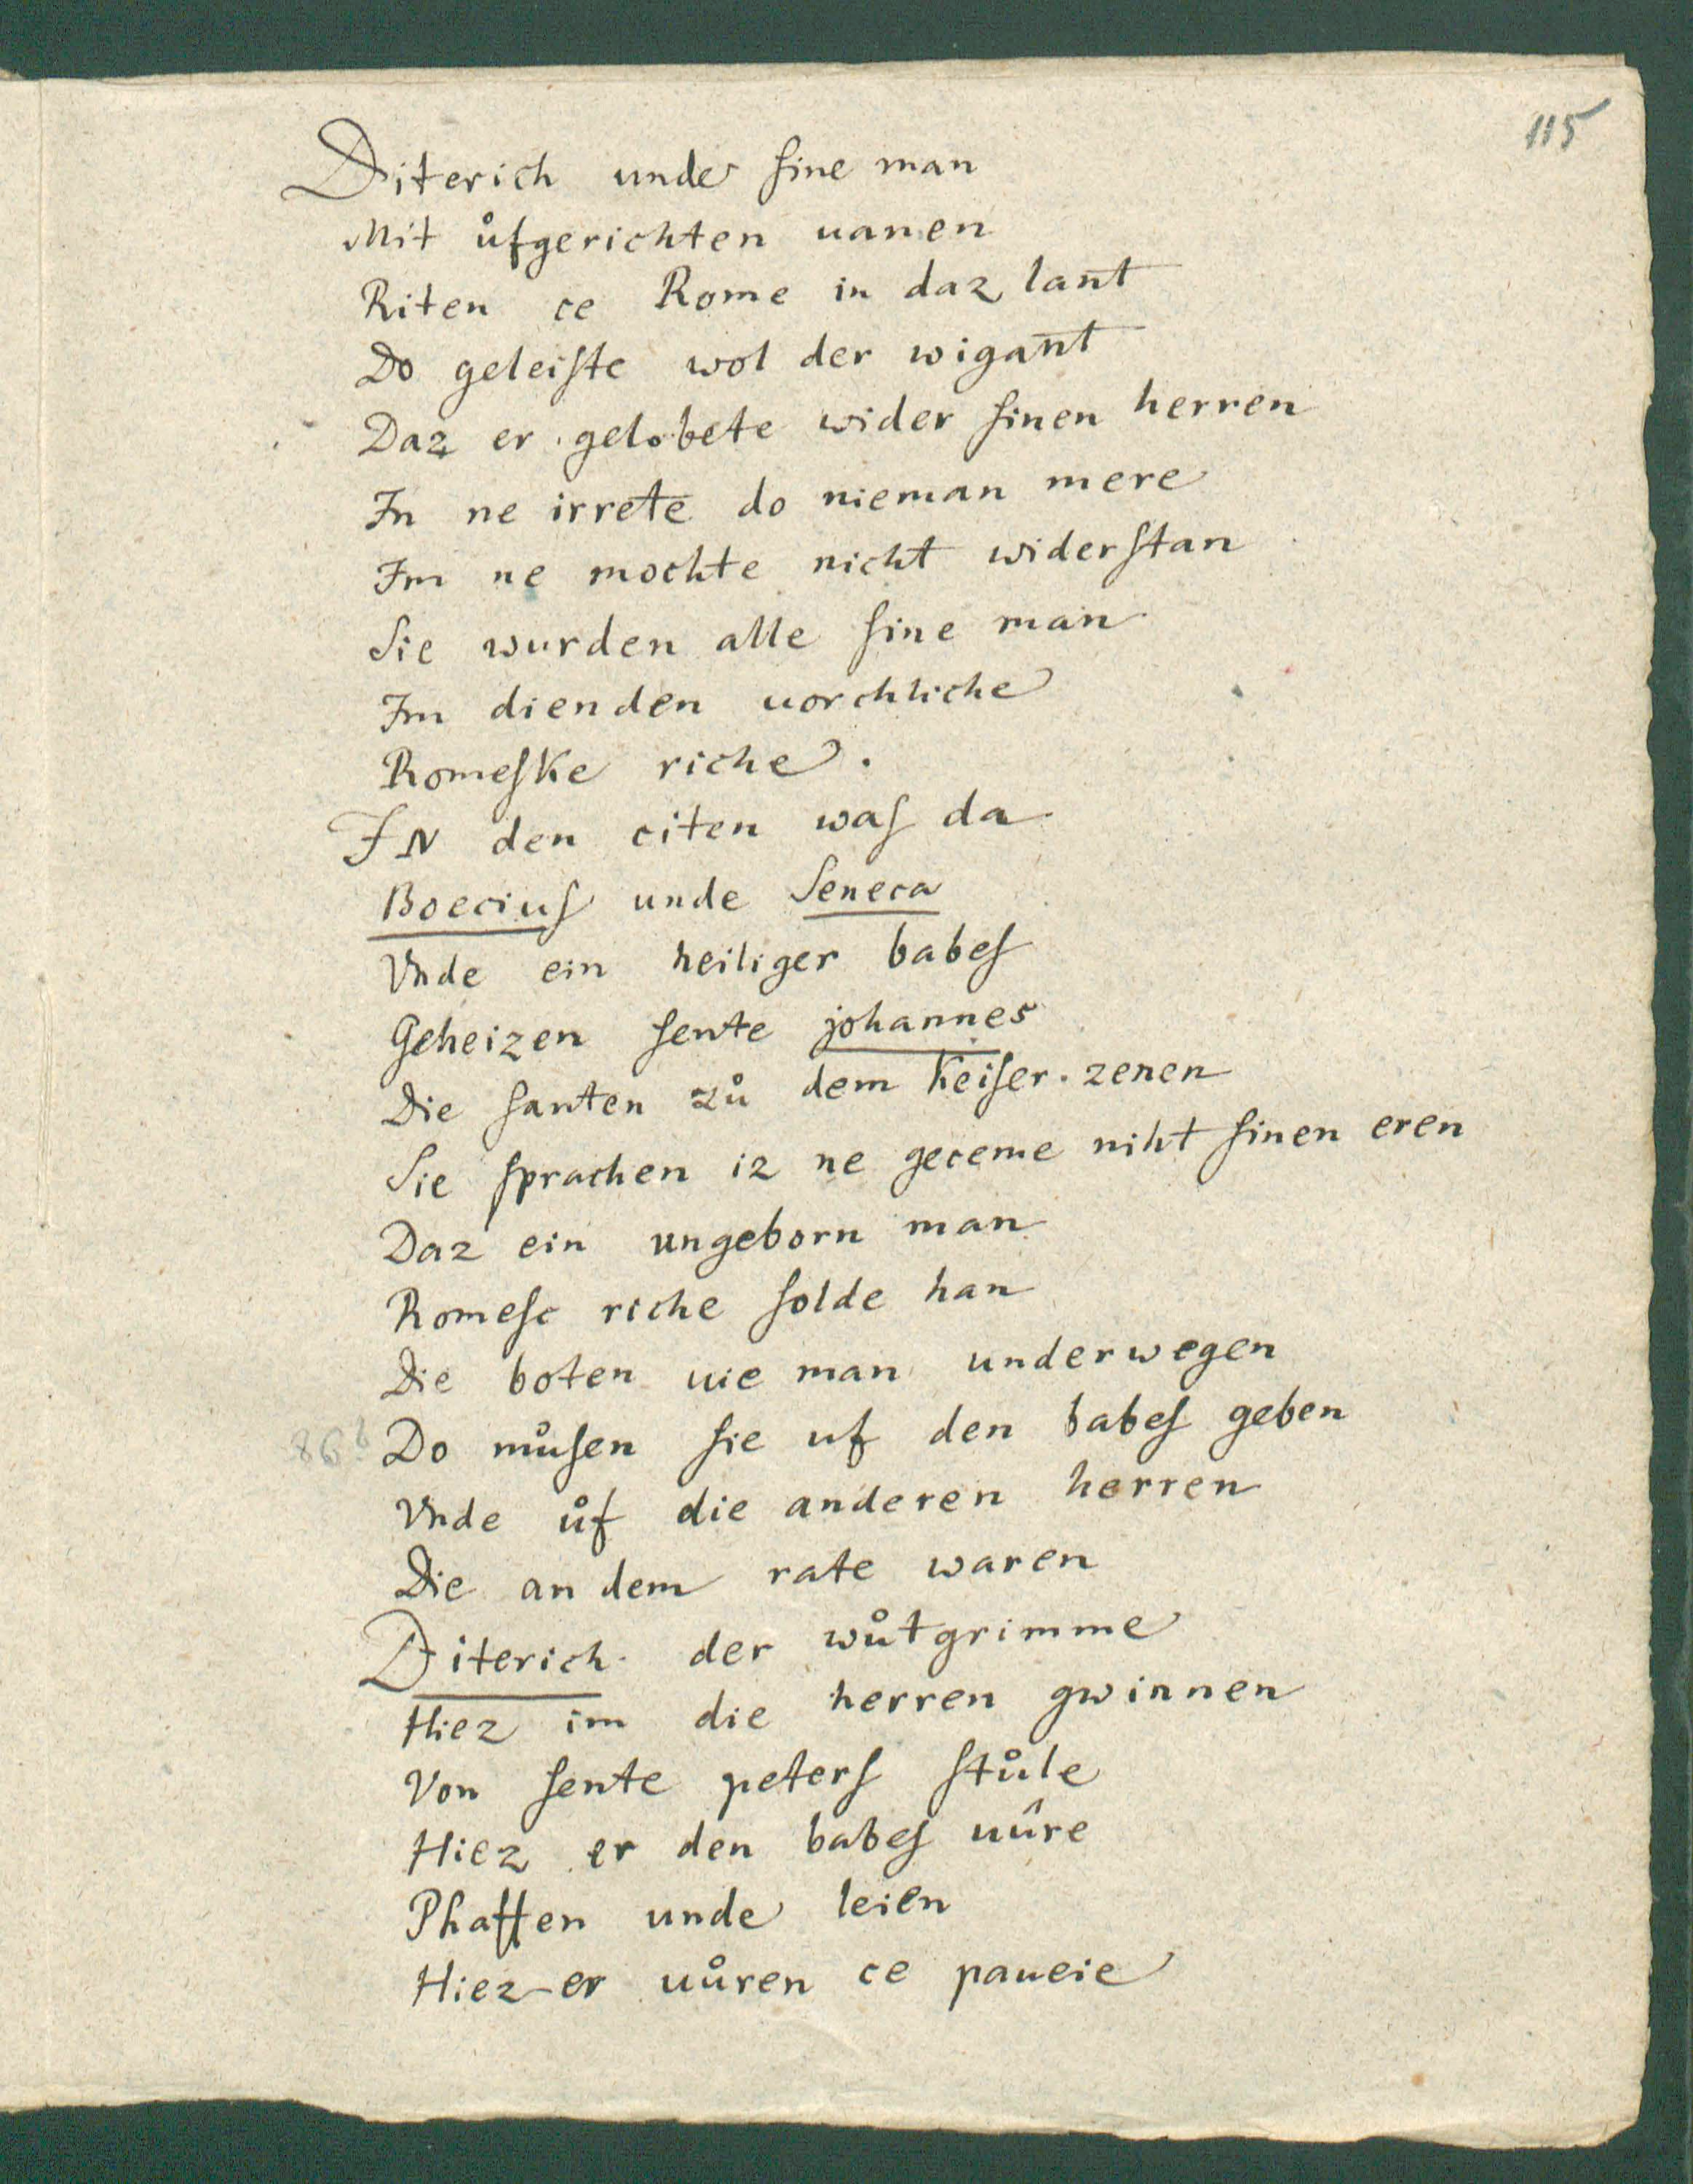 115
Diterich unde ſine man
Mit ůfgerichten uanen
Riten ce Rome in daz lant
Do geleiſte wol der wigant
Daz er gelobete wider ſinen herren
In ne irrete do nieman mere
Im ne mochte nicht widerſtan
Sie wurden alle ſine man
Im dienden uorchliche
Romeſke riche.
IN den citen waſ da
Boeciuſ unde Seneca
Vnde ein heiliger babeſ
Geheizen ſente johannes
Die ſanten zů dem keiſer. zenen
Sie ſprachen iz ne geceme niht ſinen eren
Daz ein ungeborn man
Romeſc riche ſolde han
Die boten uie man underwegen
Do můſen ſie uf den babeſ geben
Vnde ůf die anderen herren
Die an dem rate waren
Diterich der wůtgrimme
Hiez im die herren gwinnen
Von ſente peterſ ſtůle
Hiez er den babeſ uûre
Phaffen unde leien
Hiez er uůren ce paueie